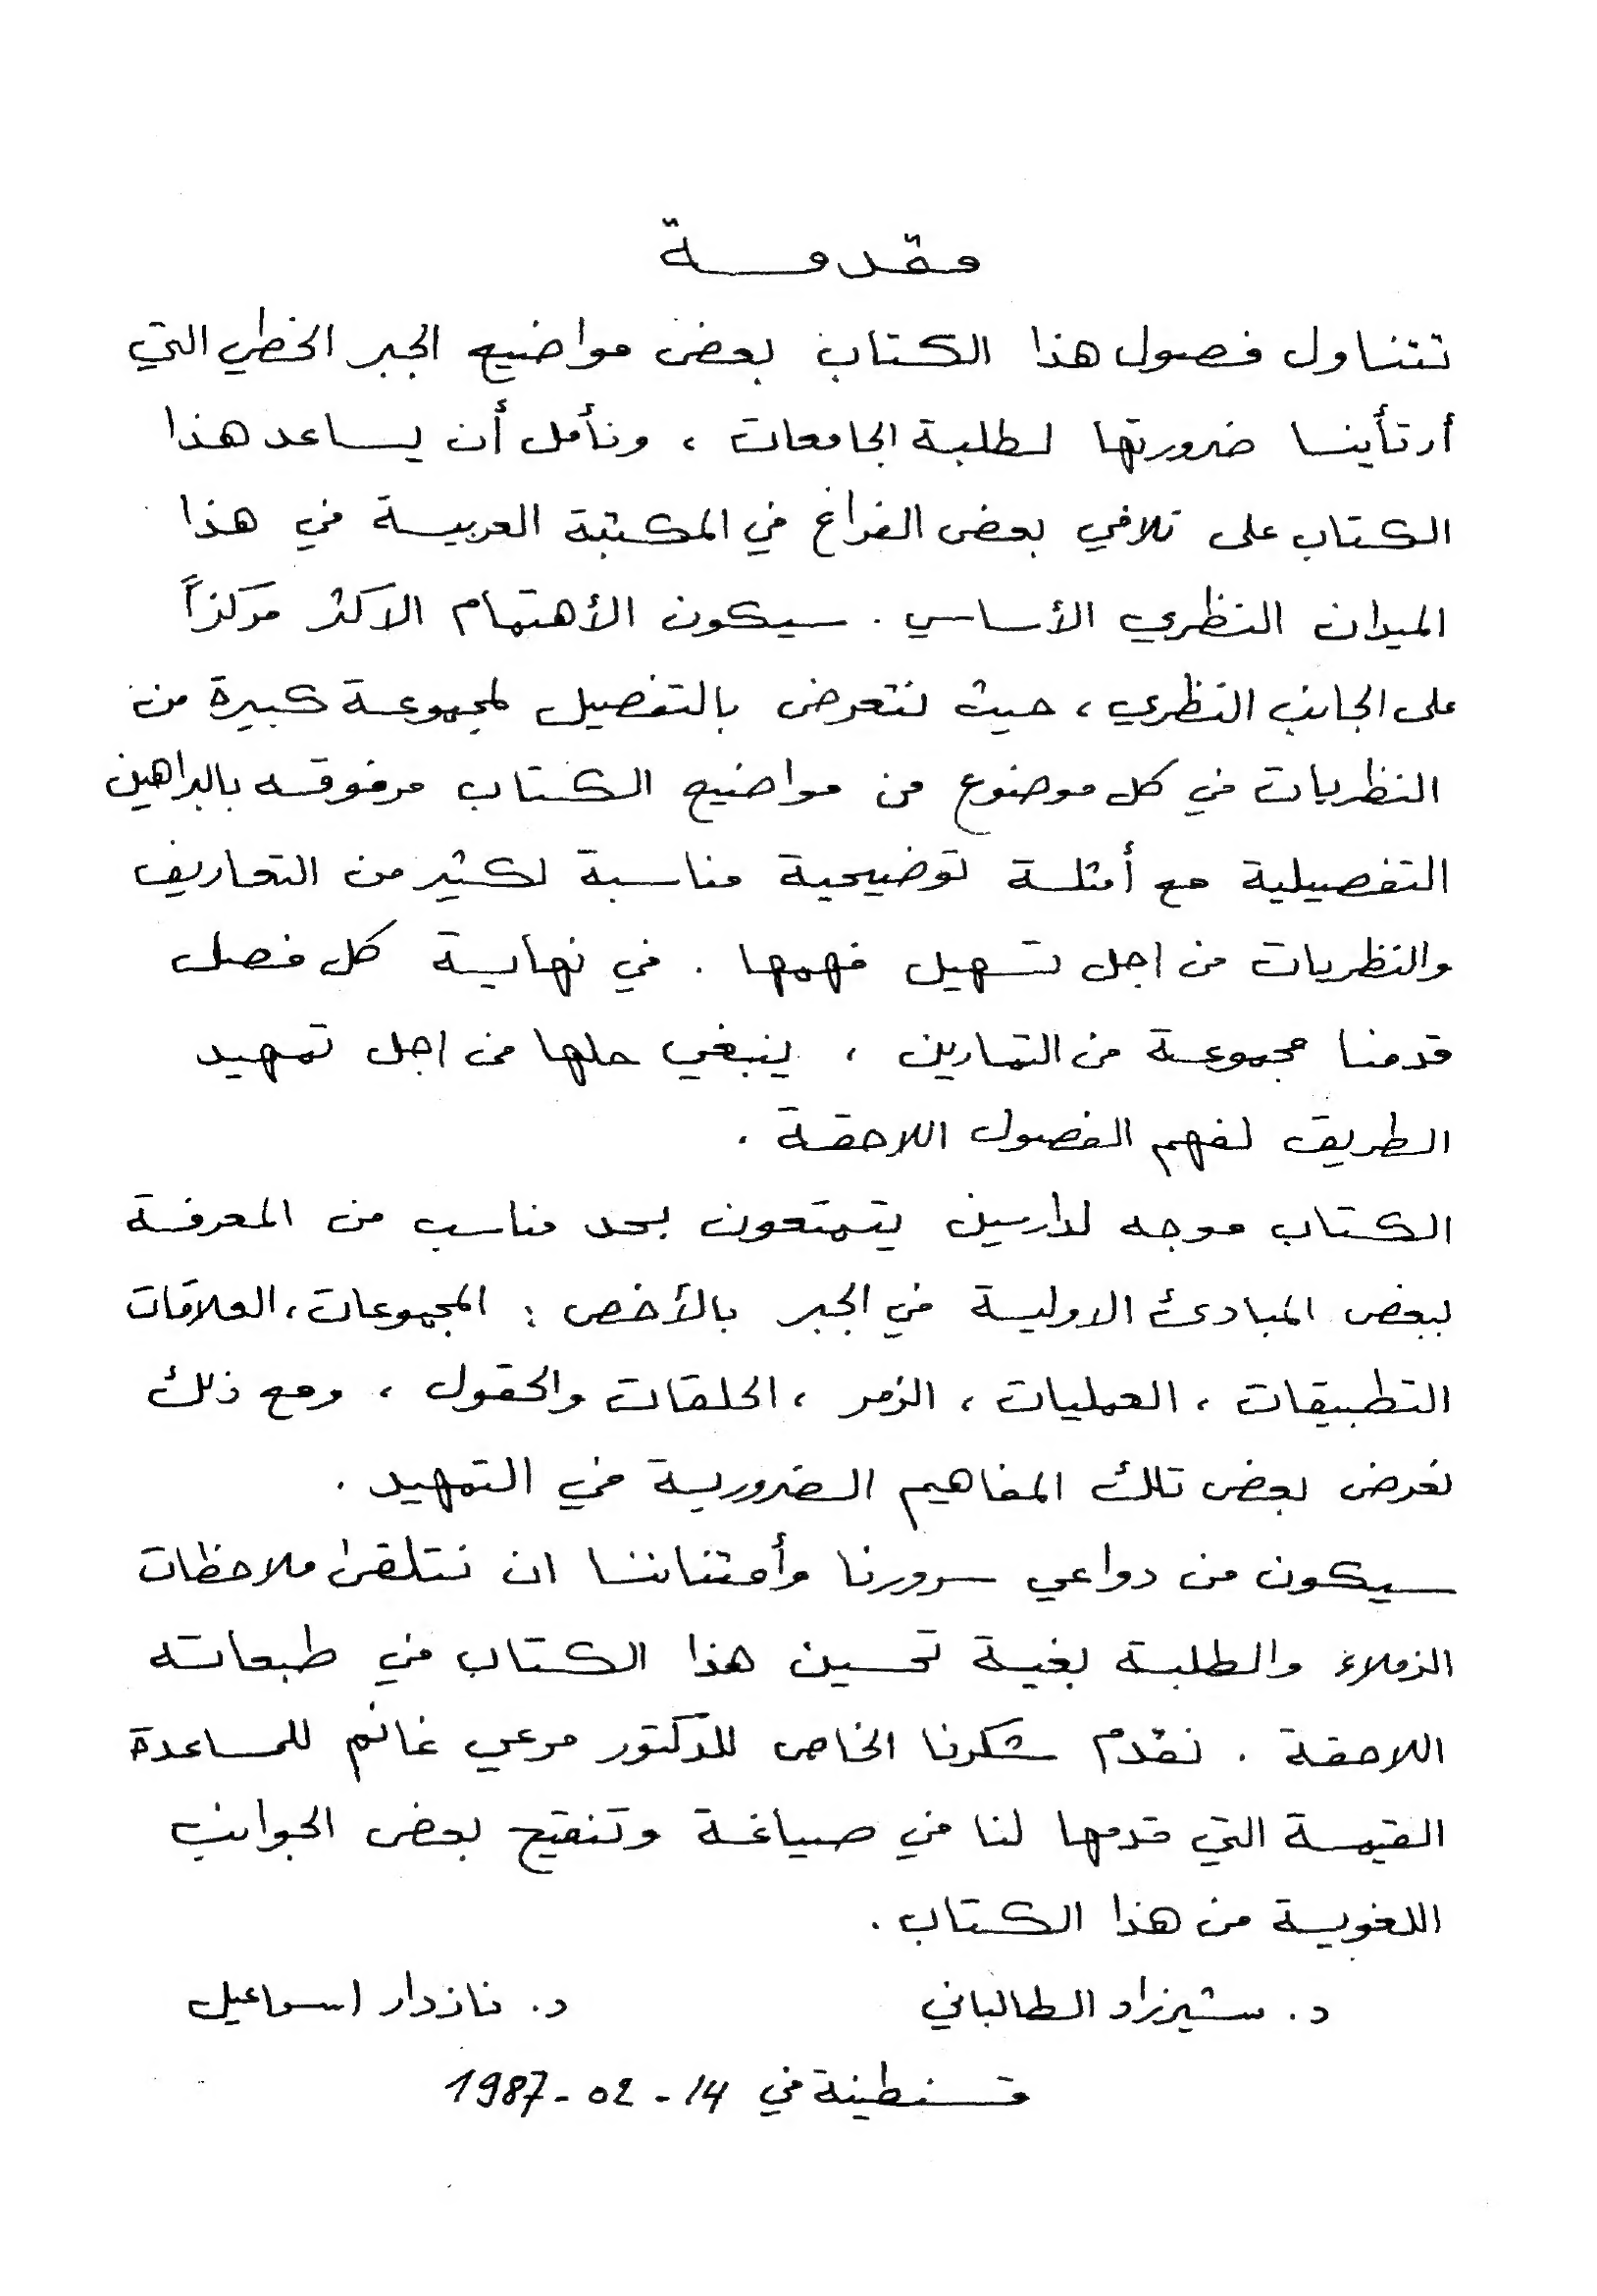 مقدمة
تتناول فصول هذا الكتاب بعض مواضيع الجبر الخطي التي
أرتأينا ضرورتها لطلبة الجامعات ، ونأمل أن يساعد هذا
الكتاب على تلافي بعض الفراغ في المكتبة العربية في هذا
الميدان النظري الأساسي . سيكون الأهتمام الاكثر مركزاً
على الجانب النظري ، حيث نتعرض بالتفصيل لمجموعة كبيرة من
النظريات في كل موضوع من مواضيع الكتاب مرفوقه بالبراهين
التفصيلية مع أمثلة توضيحية مناسبة لكثير من التعاريف
والنظريات من اجل تسهيل فهمها . في نهاية كل فصل
قدمنا مجموعة من التمارين ، ينبغي حلها من اجل تمهيد
الطريق لفهم الفصول اللاحقة .
الكتاب موجه لدارسين يتمتعون بحد مناسب من المعرفة
لبعض المبادئ الاولية في الجبر بالأخص : المجموعات ، العلاقات
التطبيقات ، العمليات ، الزمر ، الحلقات والحقول ، ومع ذلك
نعرض بعض تلك المفاهيم الضرورية في التمهيد .
سيكون من دواعي سرورنا وأمتناننا ان نتلقى ملاحظات
الزملاء والطلبة بغية تحسين هذا الكتاب في طبعاته
اللاحقة . نقدم شكرنا الخاص للدكتور مرعي غانم للمساعدة
القيمة التي قدمها لنا في صياغة وتنقيح بعض الجوانب
اللغوية من هذا الكتاب .
د. شيرزاد الطالباني د. نازدار اسماعيل
قسنطينة في 14 - 02 - 1987